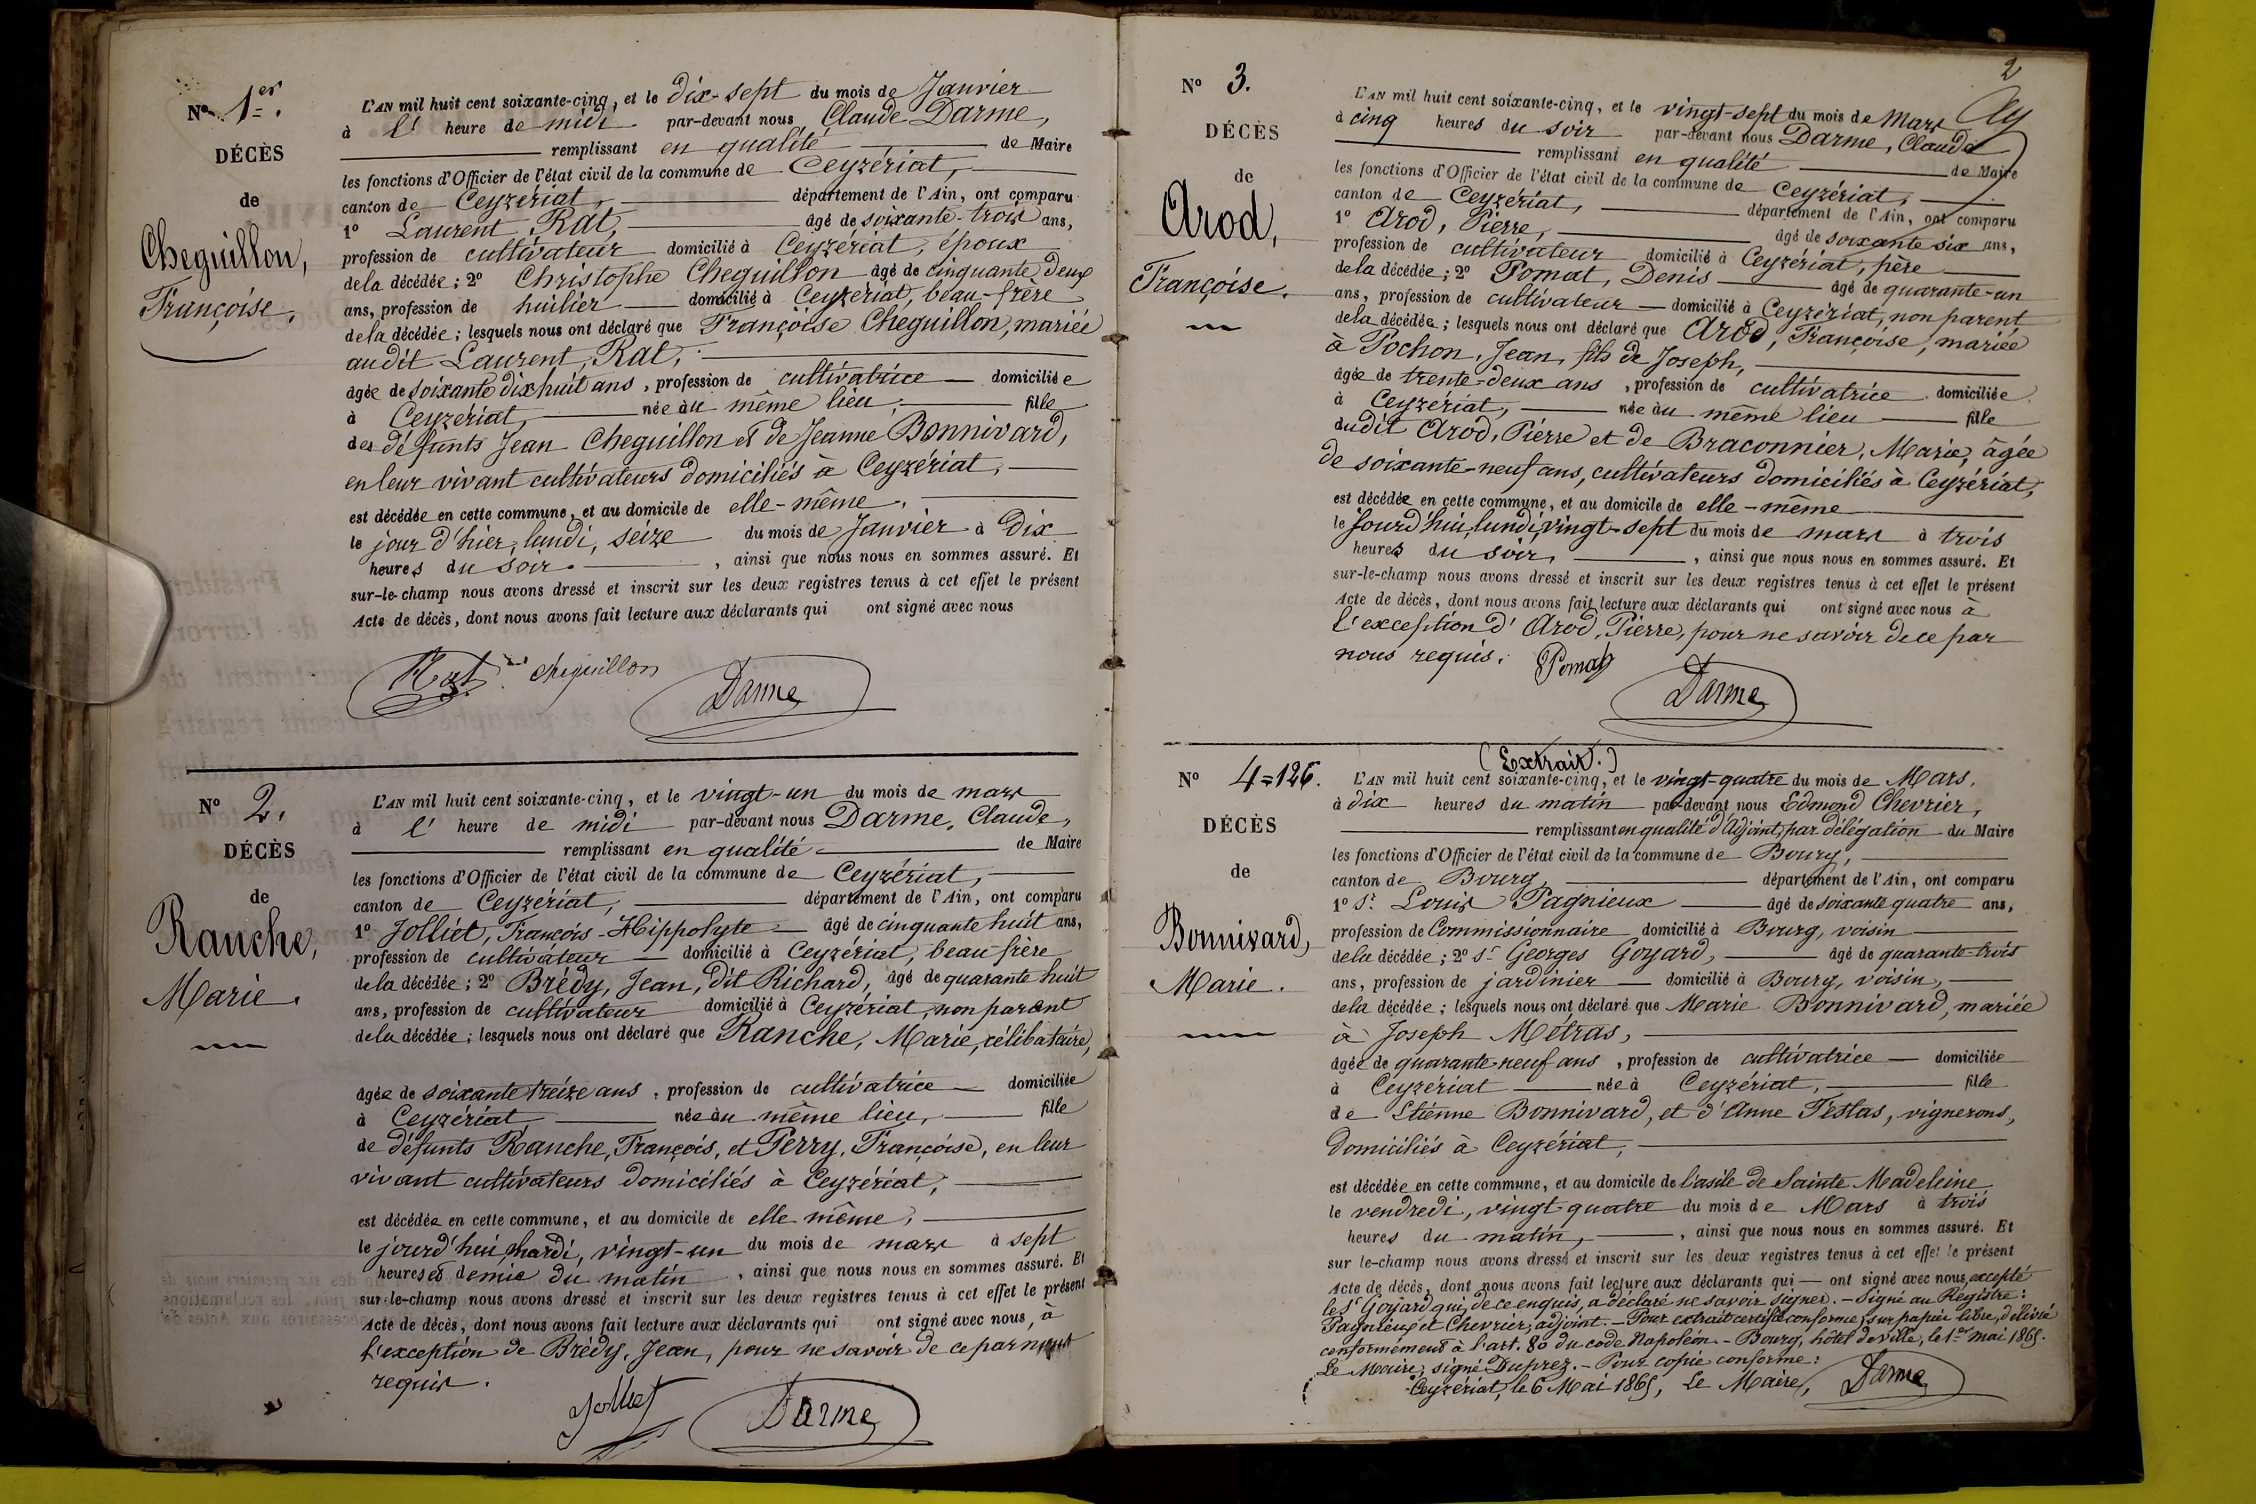 N° 1er.
DÉCÈS
de
Cheguillon,
Françoise.
L'AN mil huit cent soixante-cinq, et le dix-sept du mois de Janvier
à l' heure de midi par-devant nous Claude Darme,
remplissant en qualité de Maire
les fonctions d'Officier de l'état civil de la commune de Ceyzériat,
canton de Ceyzériat, département de l'Ain, ont comparu
1° Laurent Rat, âgé de soixante-trois ans,
profession de cultivateur domicilié à Ceyzériat, époux
de la décédée ; 2° Christophe Cheguillon âgé de cinquante deux
ans, profession de huilier domicilié à Ceyzériat, beau-frère
de la décédée ; lesquels nous ont déclaré que Françoise Cheguillon, mariée
audit Laurent, Rat,
âgée de soixante dix huit ans, profession de cultivatrice domiciliée
à Ceyzériat, née au même lieu, fille
des défunts Jean Cheguillon et de Jeanne Bonnivard,
en leur vivant cultivateurs domiciliés à Ceyzériat,
est décédée en cette commune, et au domicile de elle-même,
le jour d'hier, lundi, seize du mois de Janvier à Dix
heures du soir, ainsi que nous nous en sommes assuré. Et
sur-le-champ nous avons dressé et inscrit sur les deux registres tenus à cet effet le présent
Acte de décès, dont nous avons fait lecture aux déclarants qui ont signé avec nous
Rat Cheguillon Darme
N° 2.
DÉCÈS
de
Ranche,
Marie.
L'AN mil huit cent soixante-cinq, et le vingt-un du mois de mars
à l' heure de midi par-devant nous Darme, Claude,
remplissant en qualité de Maire
les fonctions d'Officier de l'état civil de la commune de Ceyzériat,
canton de Ceyzériat, département de l'Ain, ont comparu
1° Jolliet, François-Hippolyte âgé de cinquante huit ans,
profession de cultivateur domicilié à Ceyzériat, beau frère
de la décédée ; 2° Brédy, Jean, dit Richard, âgé de quarante huit
ans, profession de cultivateur domicilié à Ceyzériat, non parent
de la décédée ; lesquels nous ont déclaré que Ranche, Marie, célibataire,
âgée de soixante treize ans, profession de cultivatrice domiciliée
à Ceyzériat née au même lieu, fille
de défunts Ranche, François, et Perry, Françoise, en leur
vivant cultivateurs domiciliés à Ceyzériat,
est décédée en cette commune, et au domicile de elle même,
le jourd'hui, mardi, vingt-un du mois de mars à sept
heures et demie du matin, ainsi que nous nous en sommes assuré. Et
sur-le-champ nous avons dressé et inscrit sur les deux registres tenus à cet effet le présent
Acte de décès, dont nous avons fait lecture aux déclarants qui ont signé avec nous, à
l'exception de Brédy, Jean, pour ne savoir de ce par nous
requis.
Jolliet Darme
2
N° 3.
DÉCÈS
de
Arod,
Françoise.
L'AN mil huit cent soixante-cinq, et le vingt-sept du mois de Mars
à cinq heures du soir par-devant nous Darme, Claude
remplissant en qualité de Maire
les fonctions d'Officier de l'état civil de la commune de Ceyzériat,
canton de Ceyzériat, département de l'Ain, ont comparu
1° Arod, Pierre, âgé de soixante six ans,
profession de cultivateur domicilié à Ceyzériat, père
de la décédée ; 2° Pomat, Denis âgé de quarante-un
ans, profession de cultivateur domicilié à Ceyzériat, non parent
de la décédée ; lesquels nous ont déclaré que Arod, Françoise, mariée
à Pochon, Jean, fils de Joseph,
âgée de trente-deux ans, profession de cultivatrice domiciliée
à Ceyzériat, née au même lieu fille
dudit Arod, Pierre et de Braconnier, Marie, âgée
de soixante-neuf ans, cultivateurs domiciliés à Ceyzériat,
est décédée en cette commune, et au domicile de elle-même
le jourd'hui, lundi, vingt-sept du mois de mars à trois
heures du soir, ainsi que nous nous en sommes assuré. Et
sur-le-champ nous avons dressé et inscrit sur les deux registres tenus à cet effet le présent
Acte de décès, dont nous avons fait lecture aux déclarants qui ont signé avec nous à
l'exception d'Arod, Pierre, pour ne savoir de ce par
nous requis. Pomat
Darme
(Extrait.)
N° 4=126.
DÉCÈS
de
Bonnivard,
Marie.
L'AN mil huit cent soixante-cinq, et le vingt-quatre du mois de Mars.
à dix heures du matin par-devant nous Edmond Chevrier,
remplissant en qualité d'Adjoint, par délégation du Maire
les fonctions d'Officier de l'état civil de la commune de Bourg,
canton de Bourg, département de l'Ain, ont comparu
1° Sr Louis Pagnieux âgé de soixante quatre ans,
profession de Commissionnaire domicilié à Bourg, voisin
de la décédée ; 2° Sr Georges Goyard, âgé de quarante-trois
ans, profession de jardinier domicilié à Bourg, voisin,
de la décédée ; lesquels nous ont déclaré que Marie Bonnivard, mariée
à Joseph Métras,
âgée de quarante-neuf ans, profession de cultivatrice domiciliée
à Ceyzériat née à Ceyzériat, fille
de Etienne Bonnivard, et d'Anne Festas, vignerons,
domiciliés à Ceyzériat,
est décédée en cette commune, et au domicile de l'asile de Sainte Madeleine
le vendredi, vingt-quatre du mois de Mars à trois
heures du matin, ainsi que nous nous en sommes assuré. Et
sur le-champ nous avons dressé et inscrit sur les deux registres tenus à cet effet le présent
Acte de décès, dont nous avons fait lecture aux déclarants qui ont signé avec nous, excepté
le Sr Goyard qui, de ce enquis, a déclaré ne savoir signer. - Signé au Registre :
Pagnieux et Chevrier, adjoint. - Pour extrait certifié conforme, sur papier libre, délivré
conformément à l'art. 80 du code Napoléon. - Bourg, hôtel de ville, le 1er mai 1865.
Le Maire, signé Duprez. - Pour copie conforme :
Ceyzériat, le 6 Mai 1865, Le Maire, Darme